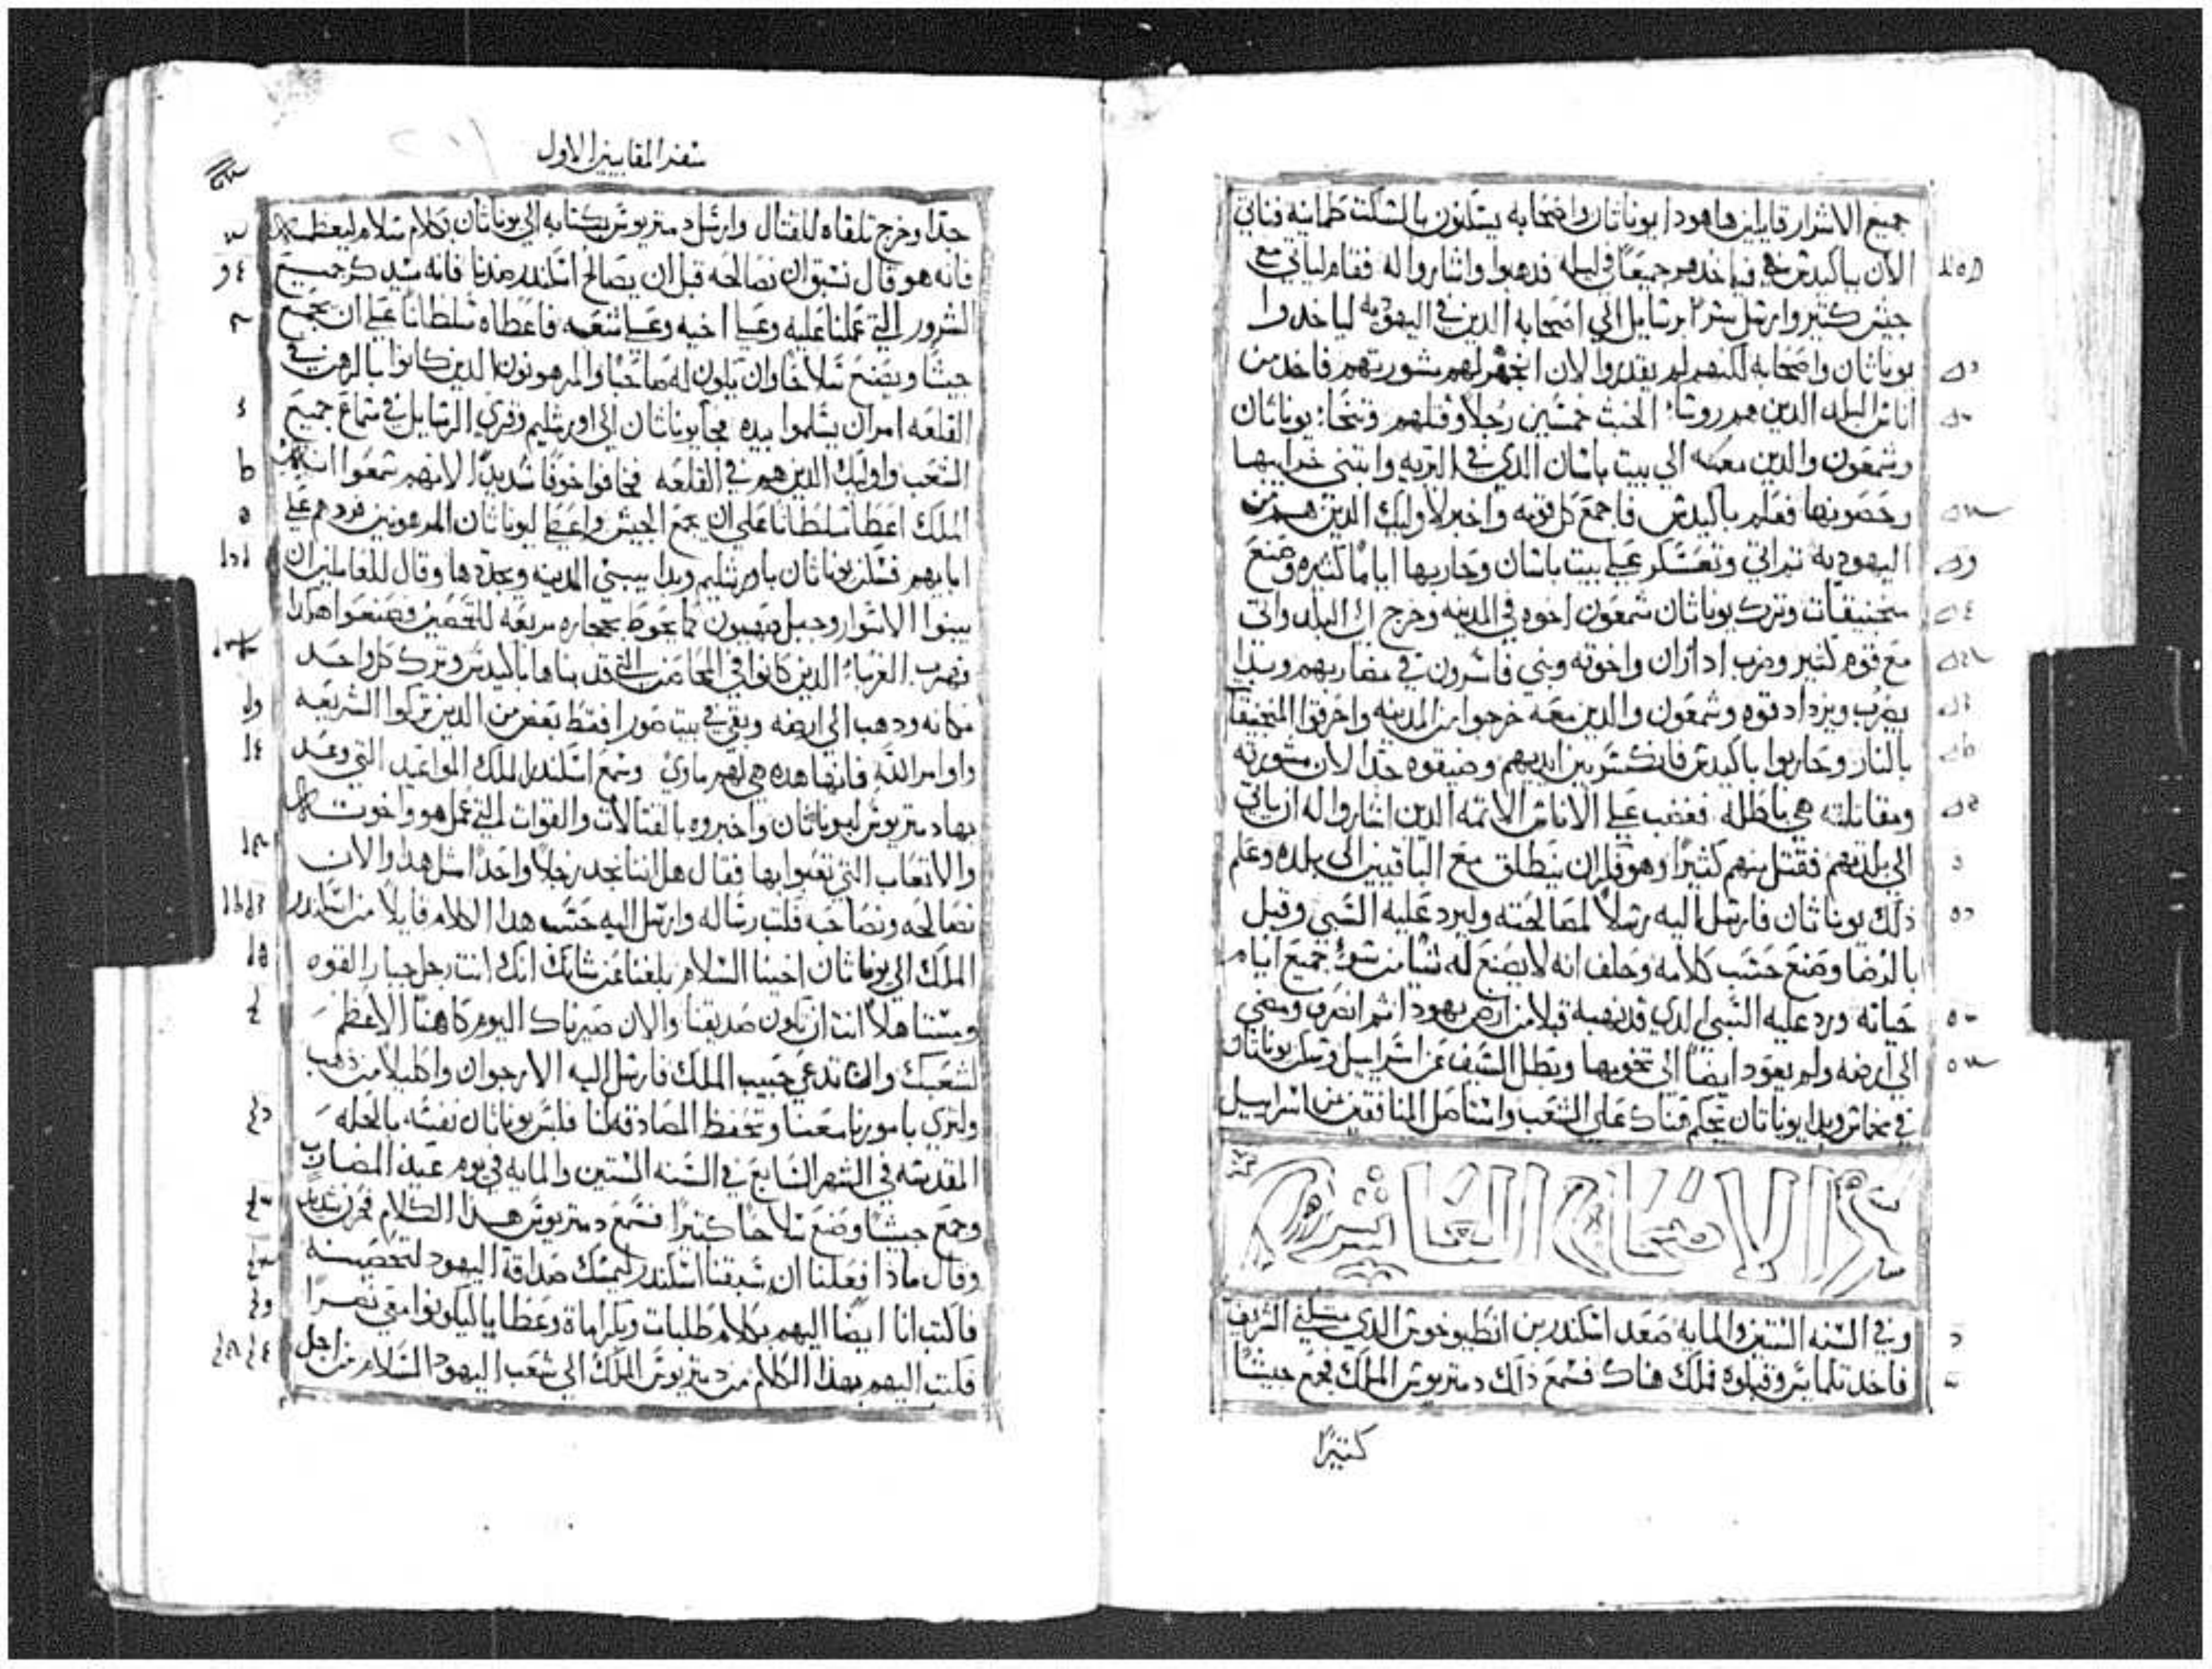 جميع الاشرار قايلين هاهودا يوناتان واصحابه يسكنون بالسكت طمانينه فناتي
الان بباكيدس فياخدهم جميعًا في ليله فدهبوا واشاروا له فقام لياتي مع
جيش كتير وارسل سرًا برسايل الي اصحابه الدين في اليهوديه لياخدوا
يوناتان واصحابه لكنهم لم يقدروا لان اتجهر لهم مشورتهم فاخد من
اناس البلد الدين هم روسا الخبث خمسين رجلاً وقتلهم وتنحا يوناتان
وشمعون والدين معه الي بيت باسان الدي في البريه وابتني خرابيها
وحصنوها فعلم باكيدس فاجمع كل قوته واخبر لاوليك الدين هم من
اليهوديه ثم اتي وتعسكر علي بيت باسان وحاربها ايامًا كثيره وصنع
منجنيقات وترك يوناتان شمعون اخوه في المدينه وخرج الي البلد واتي
مع قوم كثير وضرب اداران واخوته وبني فاسرون في مضاربهم وبدا
يضرب ويزداد قوه وشمعون والدين معه خرجوا من المدينه واحرقوا المنجنيقا
بالنار وحاربوا باكيدس فانكسر بين ايديهم وضيقوه جدًا لان مشورته
ومقاتلته هي باطله فغضب علي الاناس الاتمه الدين اشاروا له ان ياتي
الي بلدهم فقتل منهم كثيرًا وهو فكر ان ينطلق مع الباقيين الي بلده وعلم
ذلك يوناتان فارسل اليه رسلاً لمصالحته وليرد عليه السبي وقبل
بالرضا وصنع حسب كلامه وحلف انه لا يصنع له شيا من سوء جميع ايام
حياته ورد عليه السبي الدي قد نهبه قبلا من ارض يهودا ثم انصرف ومضي
الي ارضه ولم يعود ايضًا الي تخومها وبطل السيف عن اسراييل وسكن يوناتان
في مخماس وبدا يوناتان يحكم هناك علي الشعب واستاصل المنافقين من اسراييل
الاصحاح العاشر
وفي السنه الستين والمايه صعد اسكندر بن انطيوخوس الدي الشريف
فاخد تلمايس وقبلوه فملك هناك فسمع ذلك دمتريوس الملك فجمع جيشًا
كتيرًا
سفر المقابيين الاول
جدًا وخرج تلقاه للقتال وارسل دمتريوس بكتابه الي يوناتان بكلام سلام ليعظمه
فانه هو قال نسبق ان نصالحه قبل ان يصالح اسكندر ضدنا فانه سيدكر جميع
الشرور التي عملنا عليه وعلي اخيه وعلي شعبه فاعطاه سلطانًا علي ان يجمع
جيشًا ويصنع سلاحًا وان يكون له صاحبًا والمرهونون الدين كانوا بالرهن في
القلعه امر ان يسلموا بيده فجا يوناتان الي اورشليم وقري الرسايل في سماع جميع
الشعب واوليك الدين هم في القلعه فخافوا خوفًا شديدًا لانهم سمعوا ان
الملك اعطا سلطانًا علي ان يجمع الجيش واعطي ليوناتان المرهونين فردهم علي
ابايهم فسكن يوناتان باورشليم وبدا يبني المدينه ويجددها وقال للعاملين ان
يبنوا الاسوار وجبل صهيون كما يحوط بحجاره مربعه للتحصين فصنعوا هكدا
فهرب الغرباء الدين كانوا في المحاصن التي قد بناها باكيدس وترك كل واحد
مكانه ودهب الي ارضه وبقي في بيت صورا فقط بعض من الدين تركوا الشريعه
واوامر الله فانها هده هي لهم ماوي وسمع اسكندر الملك المواعيد التي وعد
بها دمتريوس ليوناتان واخبروه بالقتالات والقوات التي عمل هو واخوته
والاتعاب التي تعبوا بها فقال هل اننا نجد رجلاً واحدًا مثل هدا والان
نصالحه ونصاحبه فكتب رساله وارسل اليه حسب هدا الكلام قايلاً من اسكندر
الملك الي يوناتان اخينا السلام بلغنا عن شانك انك انت رجل جبار القوه
ومستاهلاً انت ان تكون صديقنا والان صيرناك اليوم كاهنًا الاعظم
لشعبك وان تدعي حبيب الملك فارسل اليه الارجوان واكليلا من دهب
ولتري بامورنا معنا وتحفظ المصادقه لنا فلبس يوناتان نفسه بالحله
المقدسه في الشهر السابع في السنه الستين والمايه في يوم عيد المضارب
وجمع جيشًا وصنع سلاحًا كثيرًا فسمع دمتريوس هدا الكلام فحزن شديدًا
وقال مادا فعلنا ان سبقنا اسكندر ليمسك صداقة اليهود لتحصينه
فاكتب انا ايضًا اليهم بكلام طلبات وبكرامات وعطايا ليكونوا معي نصرًا
فكتب اليهم بهدا الكلام من دمتريوس الملك الي شعب اليهود السلام من اجل